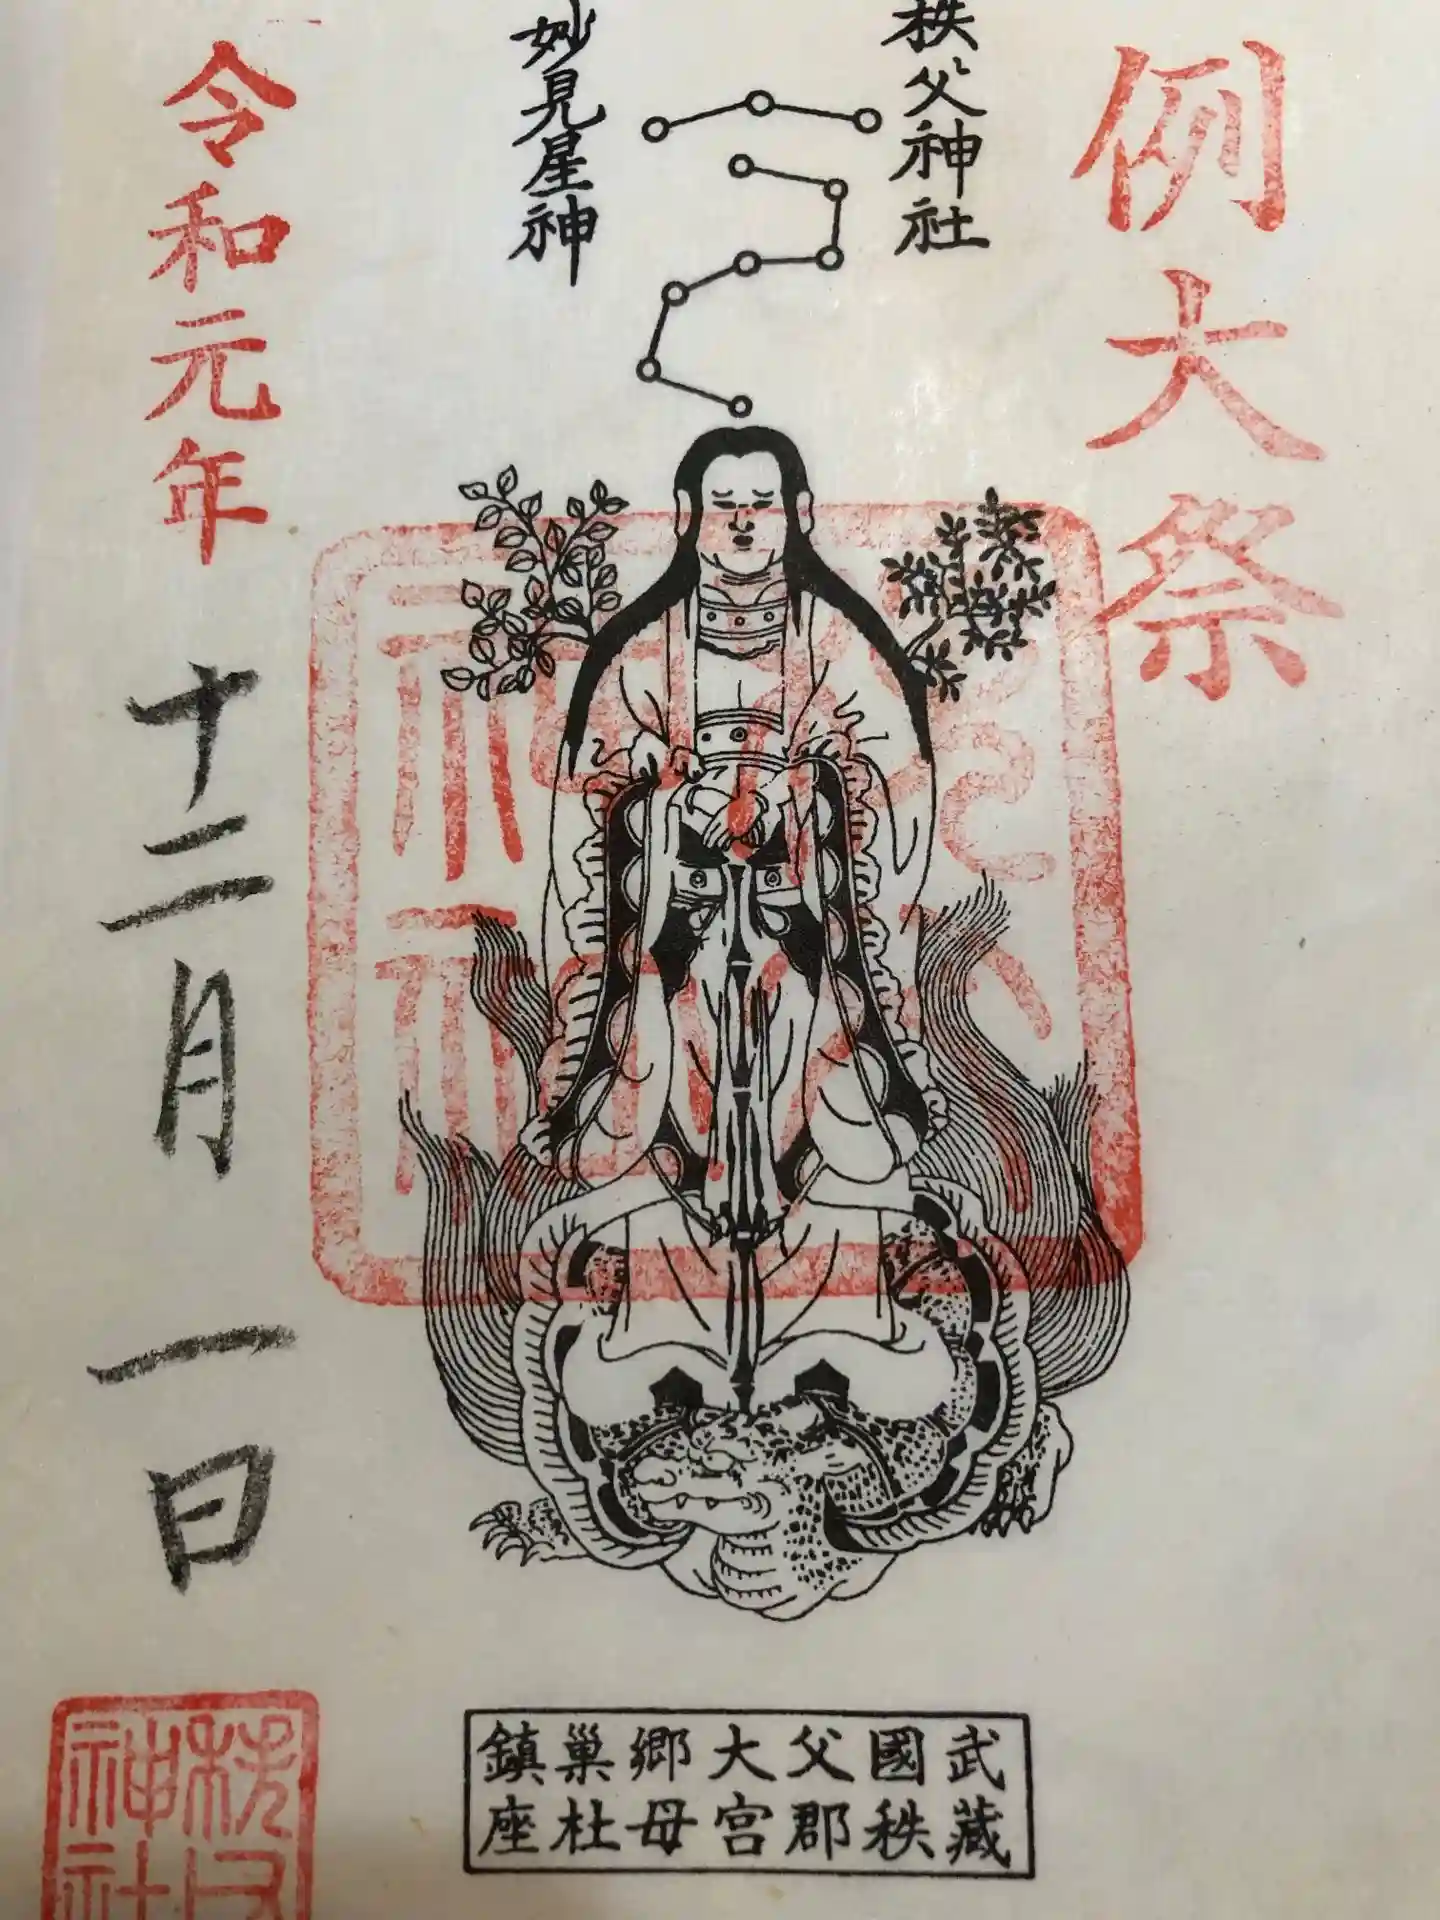 例大祭
秩父神社
妙見星神
令和元年
十二月一日
武藏
國秩
父郡
大宮
郷母
巣杜
鎮座
秩父
神社
秩父
神社